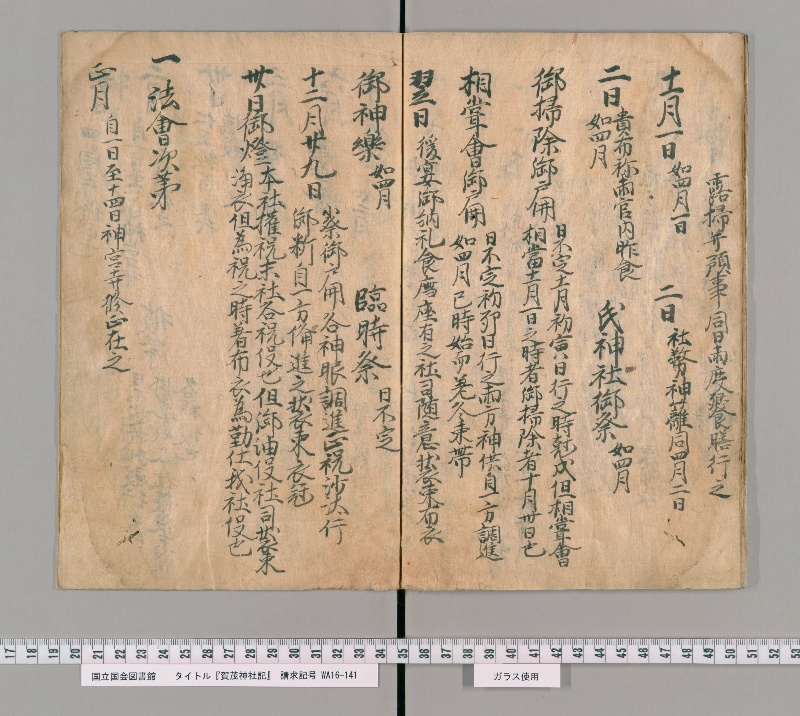 霑掃并預事同日両度饗膳行之
十一月一日 如四月一日 二日 社務神籬同四月二日
二日 貴布祢両官内昨食 如四月 氏神社御祭 如四月
御掃除御戸開 日不定十一月初寅日行之時剋戌但相嘗會
相當十一月一日之時者御掃除者十月卅日也
相嘗會御戸開 日不定初卯日行之両方神供自一方調進
如四月巳時始而巻久束帯
翌日 後宴御納礼食薦座有之社司随意装束布衣
御神樂 如四月 臨時祭 日不定
十二月廿九日 祭御戸開各神服調進正祝沙汰行
御新自一方備進之装束衣冠
卅日御燈 二本社權祝末社各祝役也但御油役社司装束
浄衣但為祝之時着布衣為勤仕我社役也
一法會次第
正月 自一日至十四日神宮寺修正在之
17 18 19 20 21 22 23 24 25 26 27 28 29 30 31 32 33 34 35 36 37 38 39 40 41 42 43 44 45 46 47 48 49 50 51 52 53
国立国会図書館 タイトル『賀茂神社記』 請求記号 WA16-141
ガラス使用